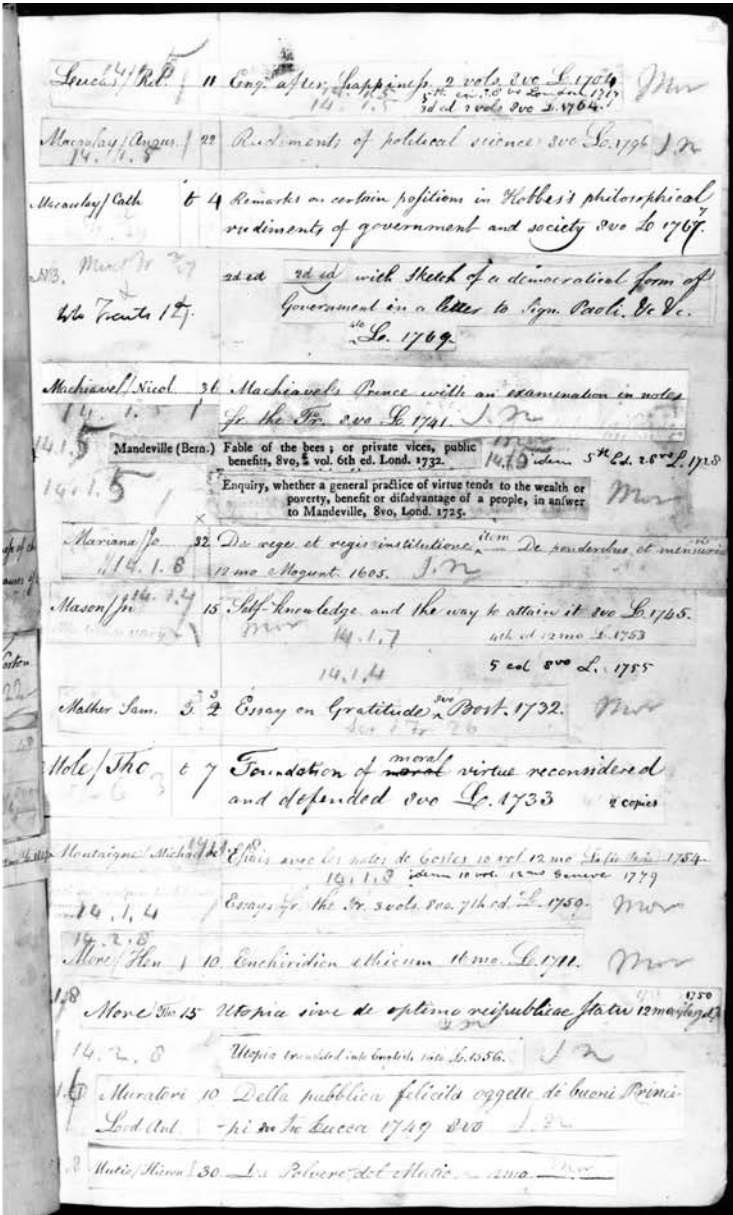 Lucas/Rd. 11 Enq. after happiness 2 vols. 8vo L. 1704 Mor
14.1.5 5th ed. 2. 8vo London 1717
3d ed 2 vols 8vo L. 1764.
Macaulay/Angus. 22 Rudiments of political science 8vo Lo. 1796 J.n
14.1.5
Macaulay/Cath t 4 Remarks on certain positions in Hobbes's philosophical
rudiments of government and society 8vo Lo 1767.
2d ed 2d ed with sketch of a democratical form of
Government in a letter to Sign. Paoli. &c &c.
Lo. 1769.
Machiavel/Nicol 36 Machiavel's Prince with an examination in notes
fr. the Fr. 8vo Lo 1741. J.n
14.1.5
14.1.5 Mandeville (Bern.) Fable of the bees; or private vices, public
benefits, 8vo, vol. 6th ed. Lond. 1732. 14.1.5 idem 5th Ed. 2 8vo L. 1728
14.1.5 Enquiry, whether a general practice of virtue tends to the wealth or
poverty, benefit or disadvantage of a people, in answer
to Mandeville, 8vo, Lond. 1725. Mor
Mariana/Jo 32 De rege et regis institutione item De ponderibus et mensuris
14.1.6 12mo Mogunt. 1605. J.n
Mason/Jn 14.1.7 15 Self-knowledge and the way to attain it 8vo L. 1745.
Mor 14.1.7 4th ed 12mo L. 1753
14.1.4 5 ed 8vo L. 1755
Mather Sam. Essay on Gratitude 8vo Bost. 1732. Mor
Mole/Tho t 7 Foundation of moral virtue reconsidered
and defended 8vo Lo. 1733 2 copies
Montaigne/Michael de Essais avec les notes de Costes 10 vol. 12mo 1754.
14.1.8 idem 10 vol. 12mo Geneve 1779
14.1.4 Essays fr. the Fr. 3 vols. 8vo. 7th ed. L. 1759. Mor
14.2.8
More/Hen 10. Enchiridion ethicum 16mo. L. 1711. Mor
More Tho 15 Utopia sive de optimo reipublicae statu 12mo 1750
14.2.8 Utopia translated into English L. 1556. J.n
Muratori 10 Della pubblica felicità oggetto de buoni Princi-
Lod Ant. -pi Lucca 1749 8vo J.n
Mutio/Hieron 30 La Polvere del Mutio